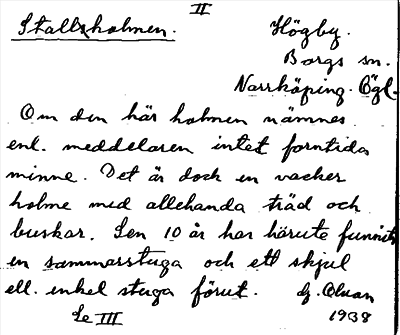 II
Stallsholmen.
Högby.
Borgs sn.
Norrköping. Ögl.
Om den här holmen nämnes
enl. meddelaren intet forntida
minne. Det är dock en vacker
holme med allehanda träd och
buskar. Sen 10 år har härute funnits
en sommarstuga och ett skjul
ell. enkel stuga förut.
Olsson
Se III
1938